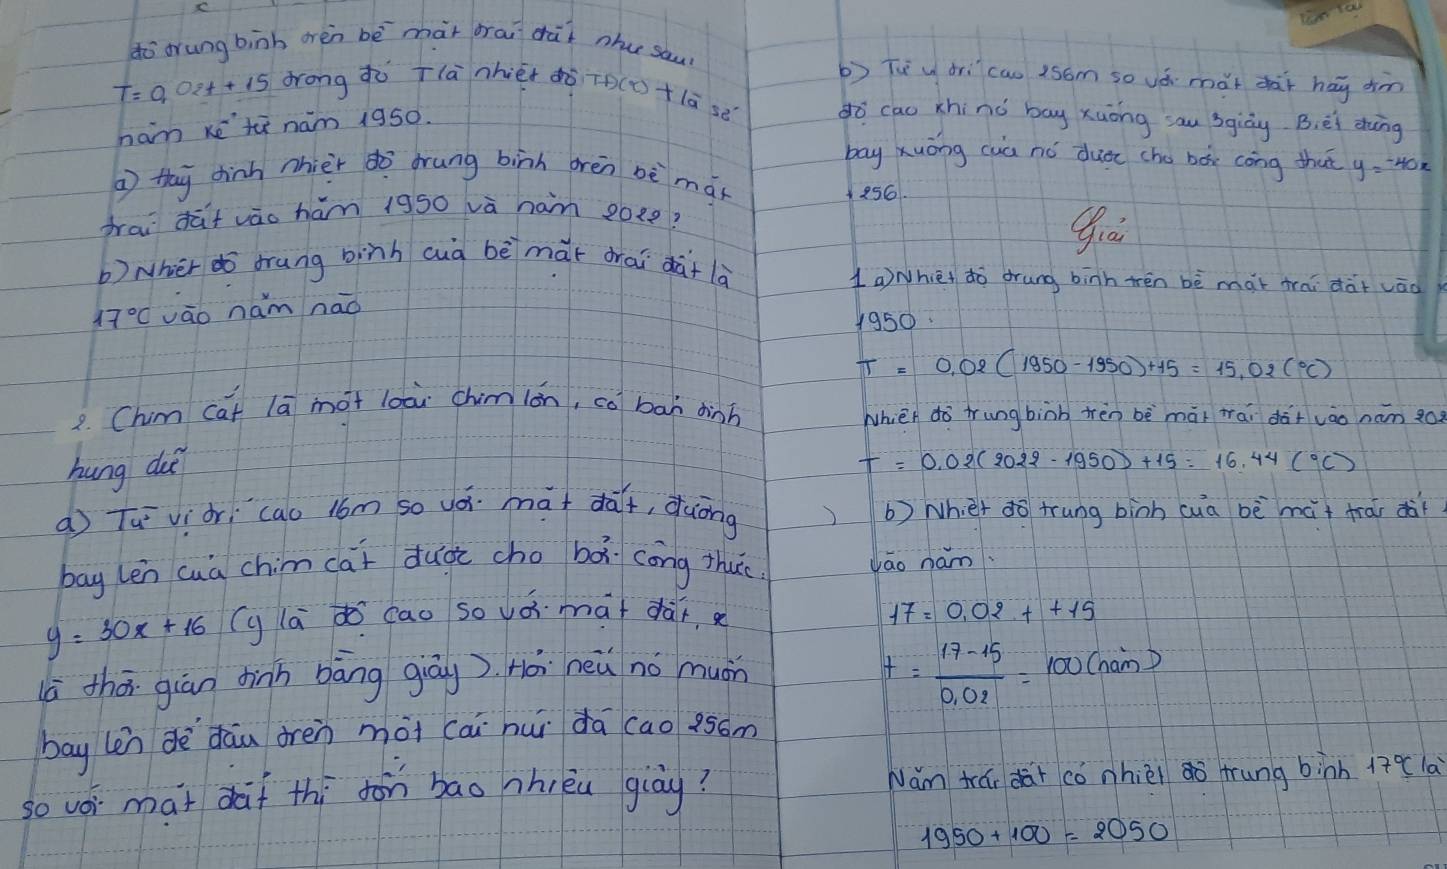 độ trung bình trên bề mặt trái đất như sau:
T = 0,02t + 15 trong đó T là nhiệt độ TĐ(t) t là số
năm kể từ năm 1950.
a) Hãy tính nhiệt độ trung bình trên bề mặt
trái đất vào năm 1950 và năm 2022?
b) Nhiệt độ trung bình của bề mặt trái đất là
17°C vào năm nào
2. Chim cắt là một loài chim lớn, có bản tính
hung dữ
a) Từ vị trí cao 16m so với mặt đất, đường
bay lên của chim cắt được cho bởi công thức:
y = 30x + 16 (y là độ cao so với mặt đất, x
là thời gian tính bằng giây). Hỏi nếu nó muốn
bay lên để đậu trên một cái núi đá cao 256m
so với mặt đất thì tốn bao nhiêu giây?
b) Từ vị trí cao 256m so với mặt đất hãy tìm
độ cao khi nó bay xuống sau 3giây. Biết đường
bay xuống của nó được cho bởi công thức y = -40x
+ 256.
Giải
1 a) Nhiệt độ trung bình trên bề mặt trái đất vào
1950.
T = 0,02 (1950 - 1950) + 15 = 15,02 (°C)
Nhiệt độ trung bình trên bề mặt trái đất vào năm 202
T = 0.02 (2022 - 1950) + 15 = 16.44 (°C)
b) Nhiệt độ trung bình của bề mặt trái đất
vào năm:
17 = 0,02 t + 15
t = 17 - 15 / 0,02 = 100 (năm)
Năm trái đất có nhiệt độ trung bình 17°C là
1950 + 100 = 2050